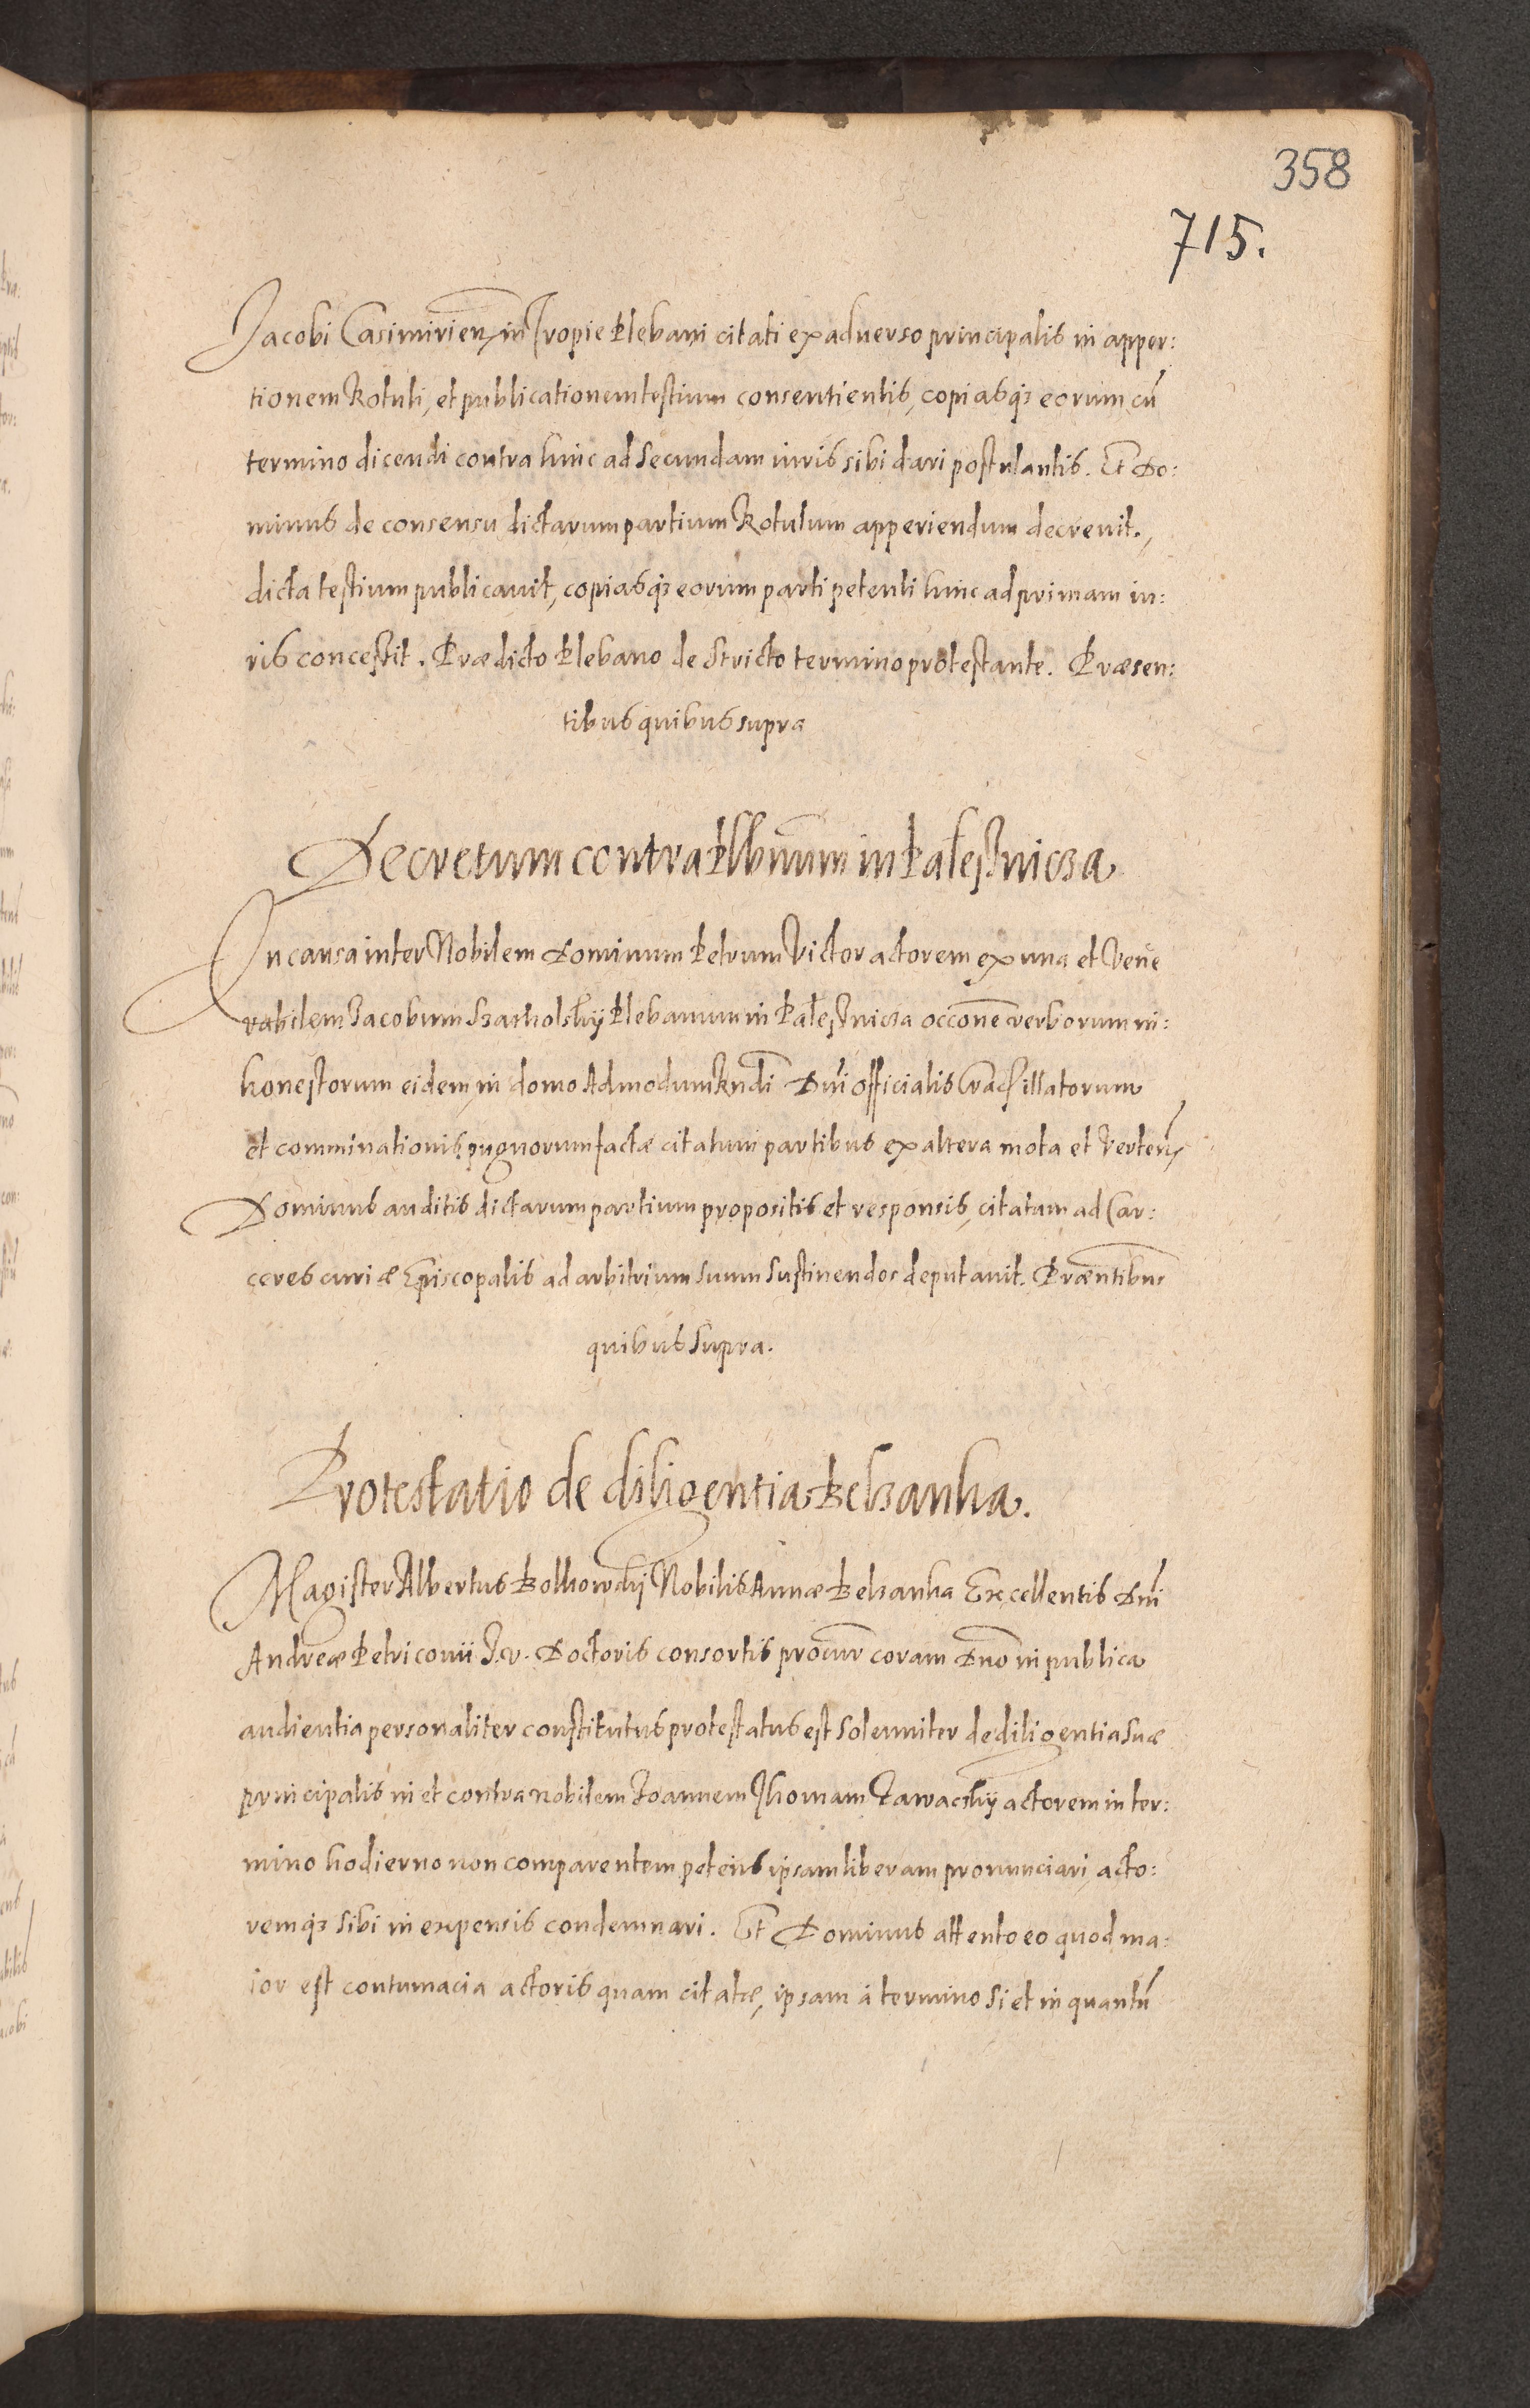 358
715.
Jacobi Casimirien in Tropie Plebani citati ex aduerso principalis in apper:
tionem Rotuli, et publicationem testium consentientis, copiasq3 eorum cū
termino dicendi contra hinc ad secundam iuris sibi dari postulantis. Et Do:
minus de consensu dictarum partium Rotulum apperiendum decreuit.,
dicta testium publicauit, copiasq3 eorum parti petenti hinc ad primam iu:
ris concessit. Prædicto Plebano de stricto termino protestante. Præsen:
tibus quibus supra
Decretum contra Plbnum in Palesnicza
In causa inter Nobilem Dominum Petrum Victor actorem ex una et Vene
rabilem Jacobum Plebanum in Palesnicza occone verborum in:
honestorum eidem in domo Admodum Rndi Dni officialis Crac illatorum
et comminationis pugnorum factæ citatum partibus ex altera mota et verten
Dominus auditis dictarum partium propositis et responsis, citatum ad Car:
ceres curiæ Episcopalis ad arbitrium suum sustinendos deputauit. Præntibus
quibus supra.
Protestatio de diligentia Belzanka.
Magister Albertus Nobilis Annæ Belzanka Excellentis Dni
Andreæ Petriconii J. v. Doctoris consortis procur coram Dno in publica
audientia personaliter constitutus protestatus est solenniter de diligentia suæ
principalis in et contra nobilem Joannem Thomam Zawacky actorem in ter:
mino hodierno non comparentem petens ipsam liberam pronunciari, acto:
remq3 sibi in expensis condemnari. Et Dominus attento eo quod ma:
ior est contumacia actoris quam citatæ, ipsam à termino si et in quantū